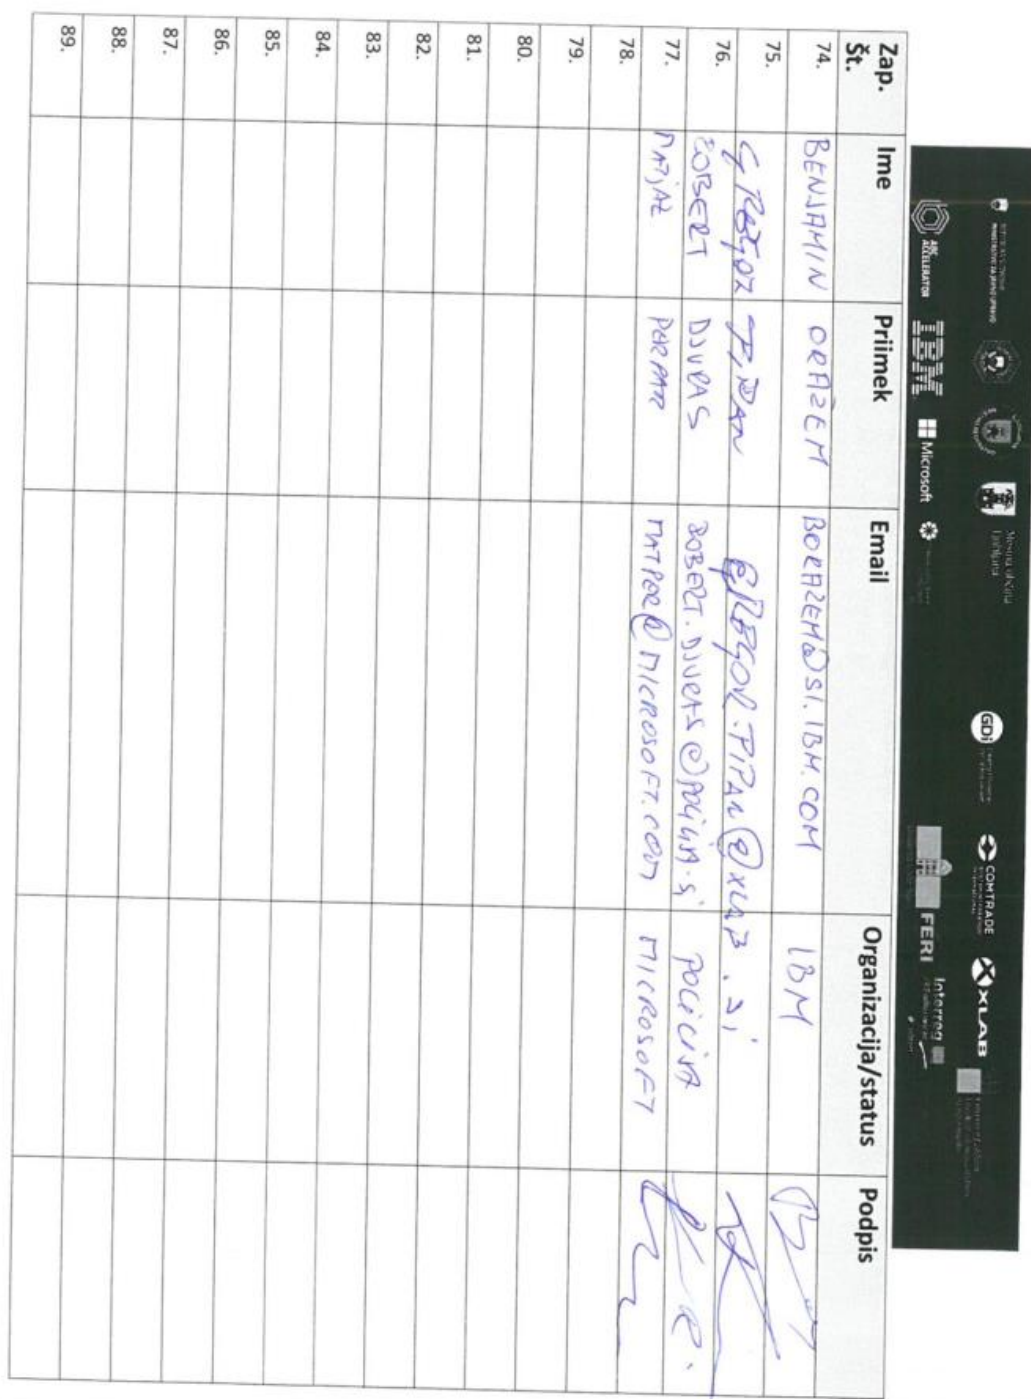 REPUBLIKA SLOVENIJA
MINISTRSTVO ZA JAVNO UPRAVO
Mestna občina
Ljubljana
GDi
COMTRADE
XLAB
ABC
ACCELERATOR
IBM
Microsoft
FERI
Interreg
Zap. Št. Ime Priimek Email Organizacija/status Podpis
74. BENJAMIN ORAZEM BORAZEM@SI.IBM.COM IBM
75. GREGOR PIPAN GREGOR.PIPAN@XLAB.Si
76. ROBERT DJURAS ROBERT.DJURAS@POLICIJA.Si POLICIJA
77. MATJAŽ PERPAR MATPER@MICROSOFT.COM MICROSOFT
78.
79.
80.
81.
82.
83.
84.
85.
86.
87.
88.
89.